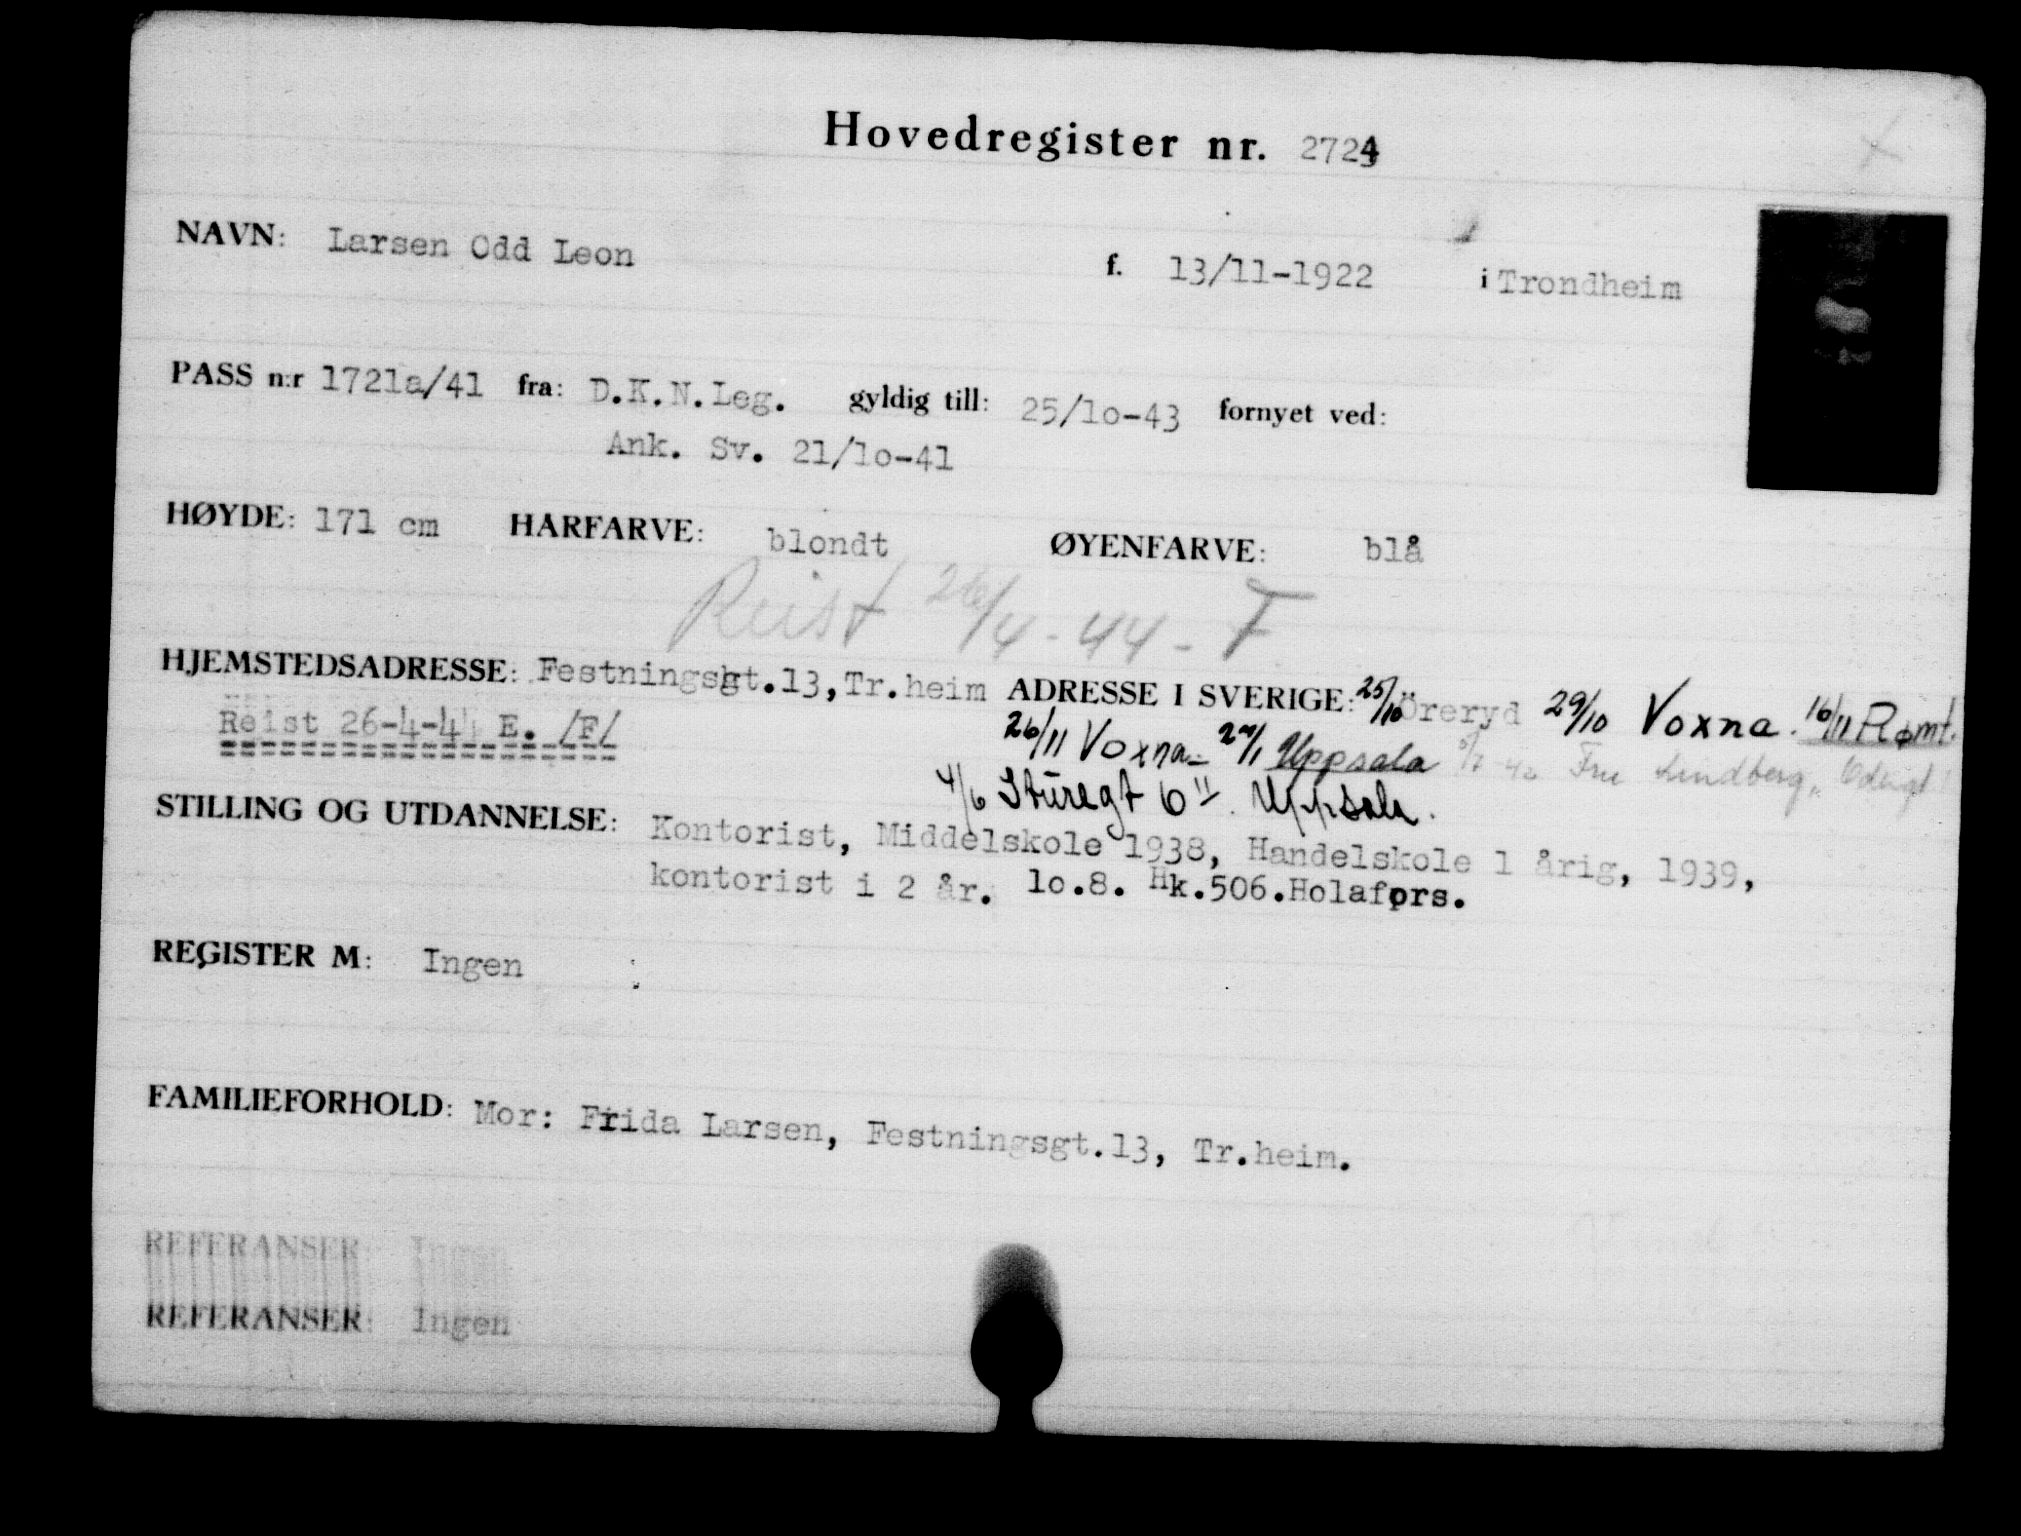 Hovedregister nr. 2724
NAVN: Larsen Odd Leon f. 13/11-1922 i Trondheim
PASS n:r 1721a/41 fra: D.K.N.Leg. gyldig till: 25/lo-43 fornyet ved:
Ank. Sv. 21/lo-41
HØYDE: 171 cm HÅRFARVE: blondt ØYENFARVE: blå
Reist 26/4-44 - F
HJEMSTEDSADRESSE: Festningsgt.13,Tr.heim ADRESSE I SVERIGE: 25/10 Öreryd 29/10 Voxna. 16/11 Rømt.
Reist 26-4-44 E. /F/ 26/11 Voxna - Uppsala Fru Lindberg,
4/6 Sturegt 6 II. Uppsala.
STILLING OG UTDANNELSE: Kontorist, Middelskole 1938, Handelskole 1 årig, 1939,
kontorist i 2 år. lo.8. Hk.506.Holafors.
REGISTER M: Ingen
FAMILIEFORHOLD: Mor: Frida Larsen, Festningsgt.13, Tr.heim.
REFERANSER: Ingen
REFERANSER: Ingen